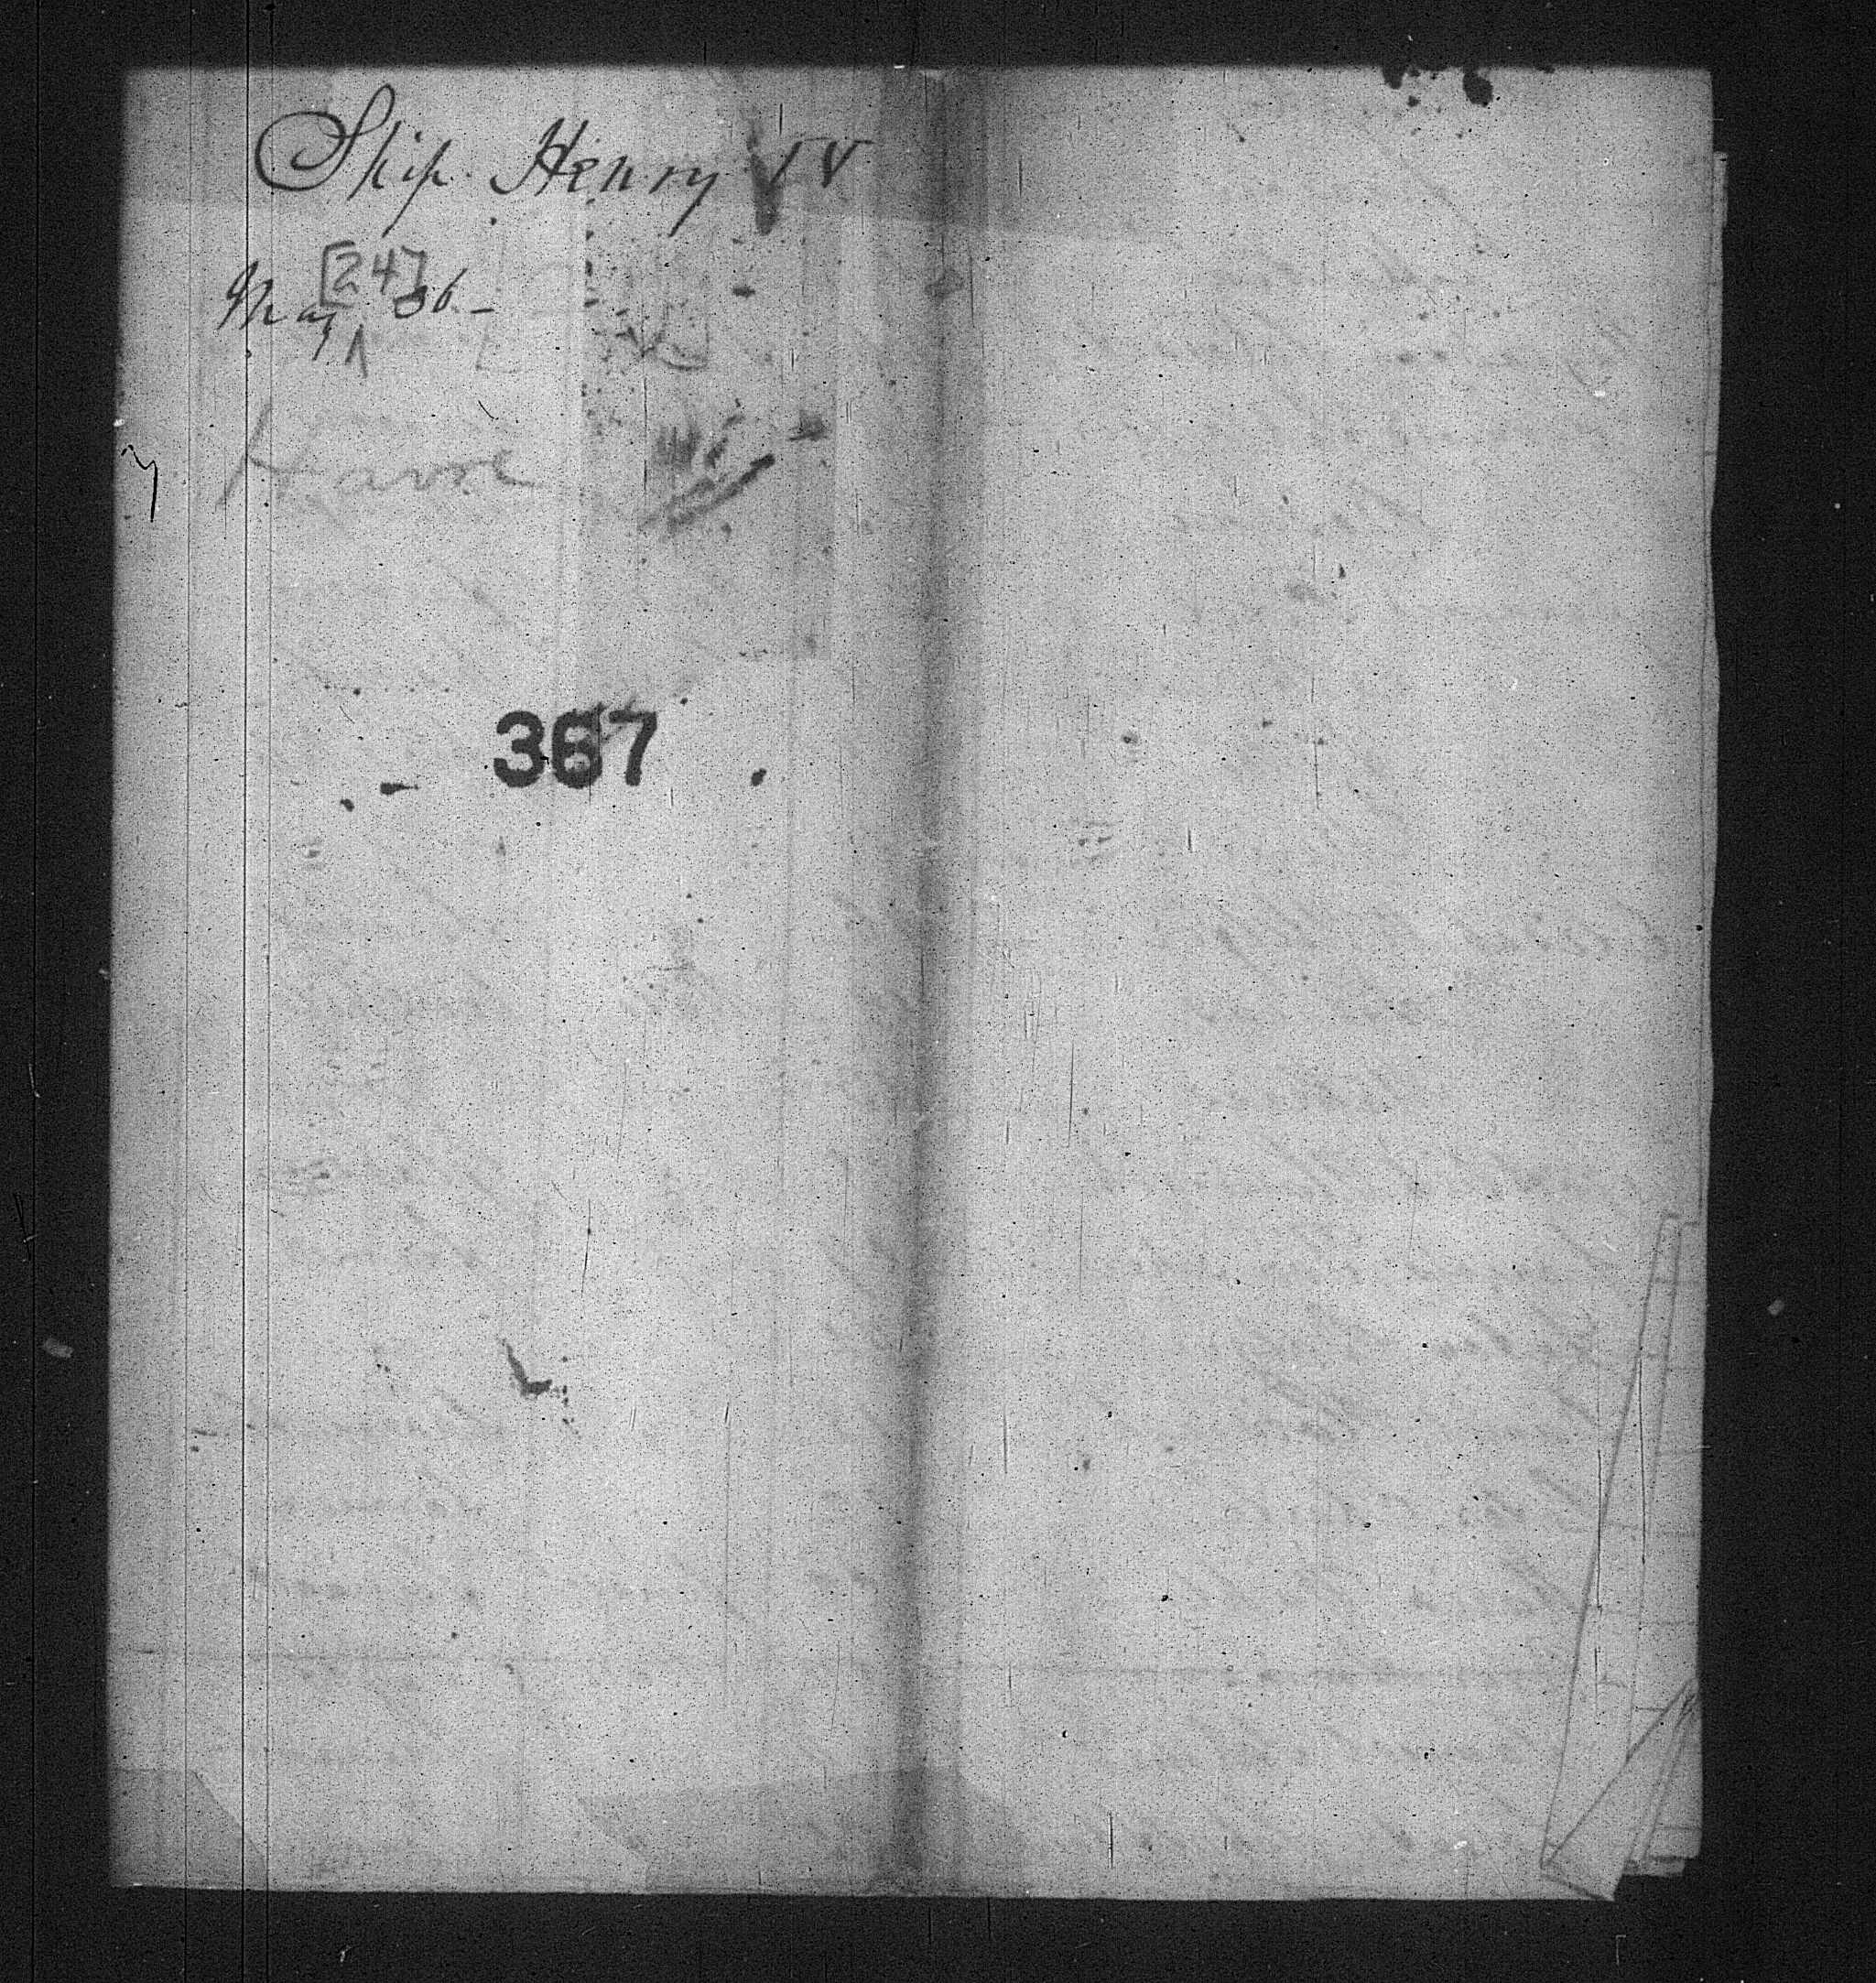 Ship Henry IV
May [24] 36 -
Havre
367